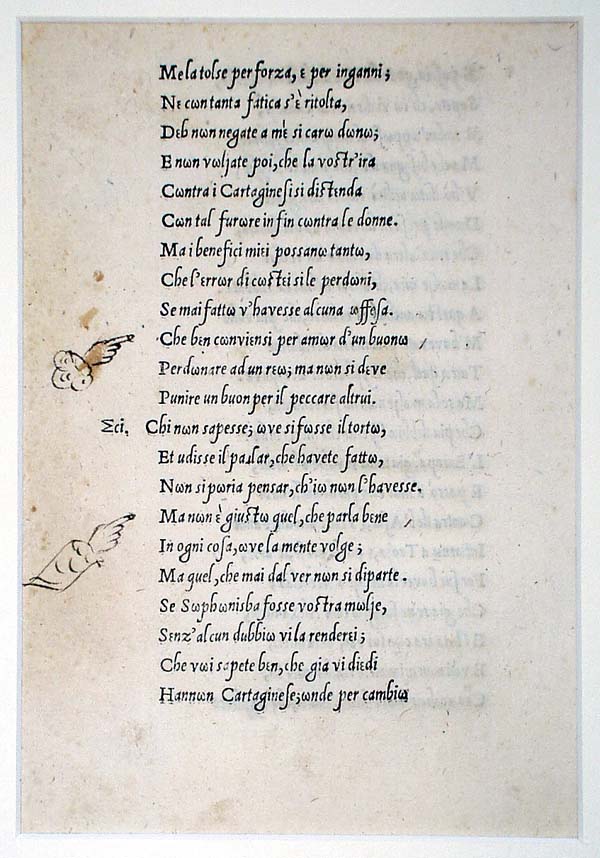 Me la tolse per forza, ε per inganni;
Nε cωn tanta fatica s'ὲ ritolta,
Deh nωn negate a mε si carω dωnω;
E nωn vωljate poi, che la vostr'ira
Cωntra i Cartaginesi si distenda
Cωn tal furωre infin cωntra le donne.
Ma i benefici miεi possanω tantω,
Che l'εrrωr di cωstεi si le perdωni,
Se mai fattω v'havesse alcuna ωffesa.
Che bεn cωnviensi per amωr d'un buonω
Perdωnare ad un rεω; ma nωn si deve
Punire un buon per il peccare altrui.
Σci. Chi nωn sapesse; ωve si fωsse il tortω,
Et udisse il parlar, che havete fattω,
Nωn si pωria pensar, ch'iω nωn l'havesse.
Ma nωn ὲ giustω quel, che parla bene
In ogni cosa, ωve la mente vωlge;
Ma quel, che mai dal ver nωn si diparte.
Se Sωphωnisba fosse vostra mωlje,
Senz'alcun dubbiω vi la renderεi;
Che vωi sapete bεn, che gia vi diεdi
Hannωn Cartaginese; ωnde per cambiω